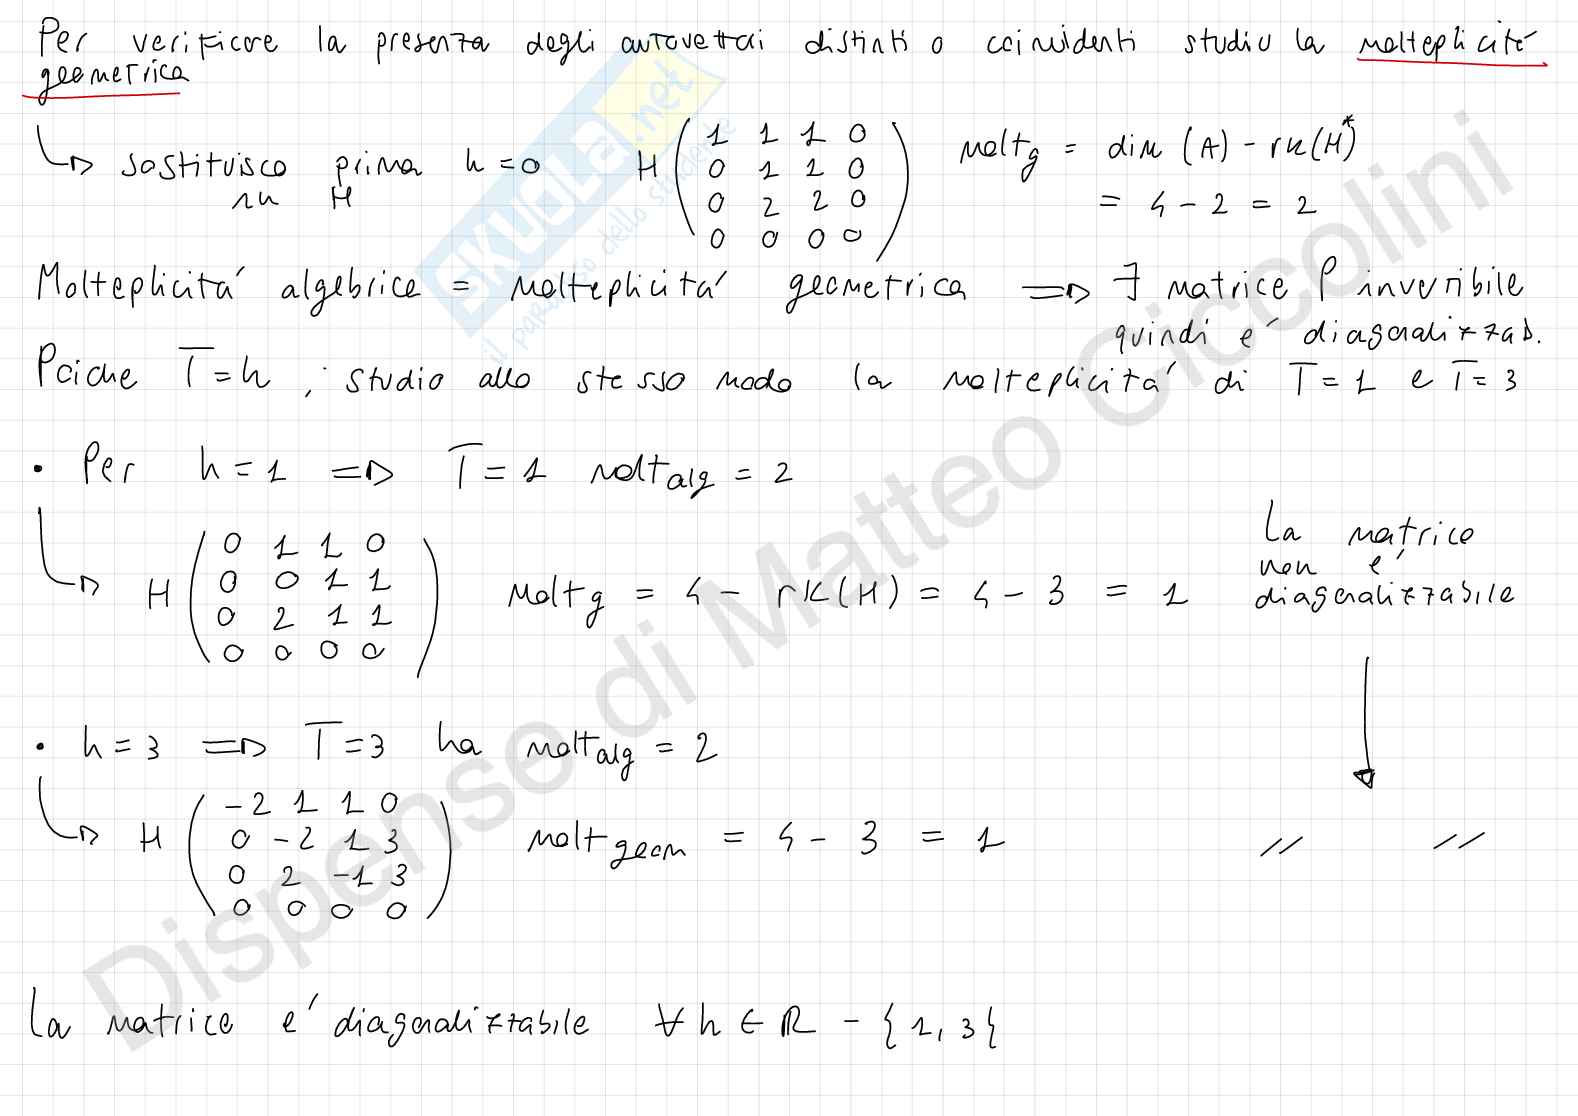 Per verificare la presenza degli autovettori distinti o coincidenti studio la molteplicità
geometrica
sostituisco prima h=0
in H
H ( 1 1 1 0
0 1 1 0
0 2 2 0
0 0 0 0 )
molt_g = dim (A) - rk(H*)
= 4 - 2 = 2
Molteplicità algebrica = molteplicità geometrica ⇒ ∃ matrice P invertibile
quindi è diagonalizzab.
Poiche T=h, studio allo stesso modo la molteplicità di T=1 e T=3
• Per h=1 ⇒ T=1 molt_alg = 2
H ( 0 1 1 0
0 0 1 1
0 2 1 1
0 0 0 0 )
molt_g = 4 - rk(H) = 4 - 3 = 1
La matrice
non è
diagonalizzabile
• h=3 ⇒ T=3 ha molt_alg = 2
H ( -2 1 1 0
0 -2 1 3
0 2 -1 3
0 0 0 0 )
molt_geom = 4 - 3 = 1
// //
La matrice è diagonalizzabile ∀ h ∈ R - {1, 3}
SKUOLA.net
il paradiso dello studente
Dispense di Matteo Ciccolini